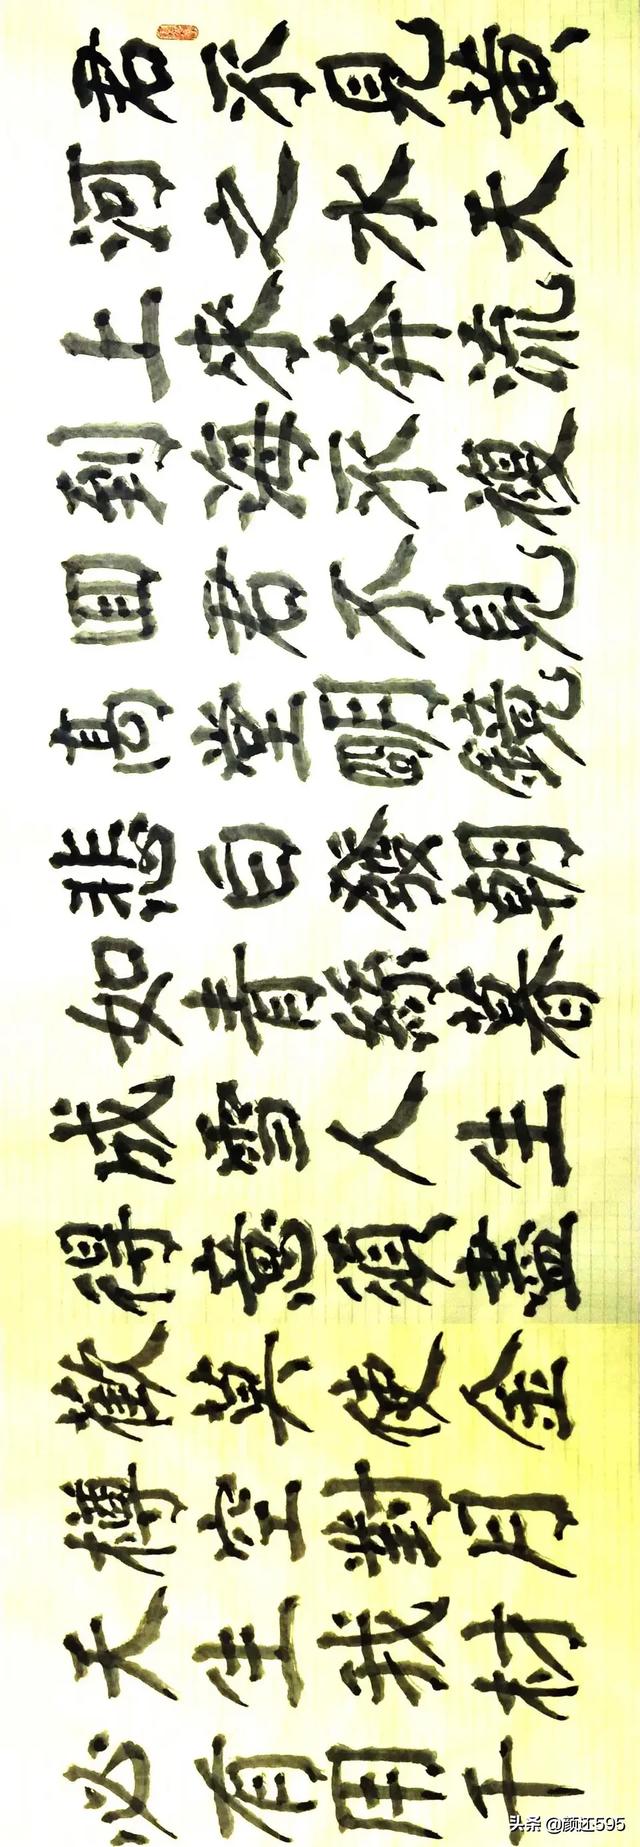 君不見黃
河之水天
上來奔流
到海不復
回君不見
高堂明鏡
悲白發朝
如青絲暮
成雪人生
得意須盡
歡莫使金
樽空對月
天生我材
必有用千
头条 @颜迋595